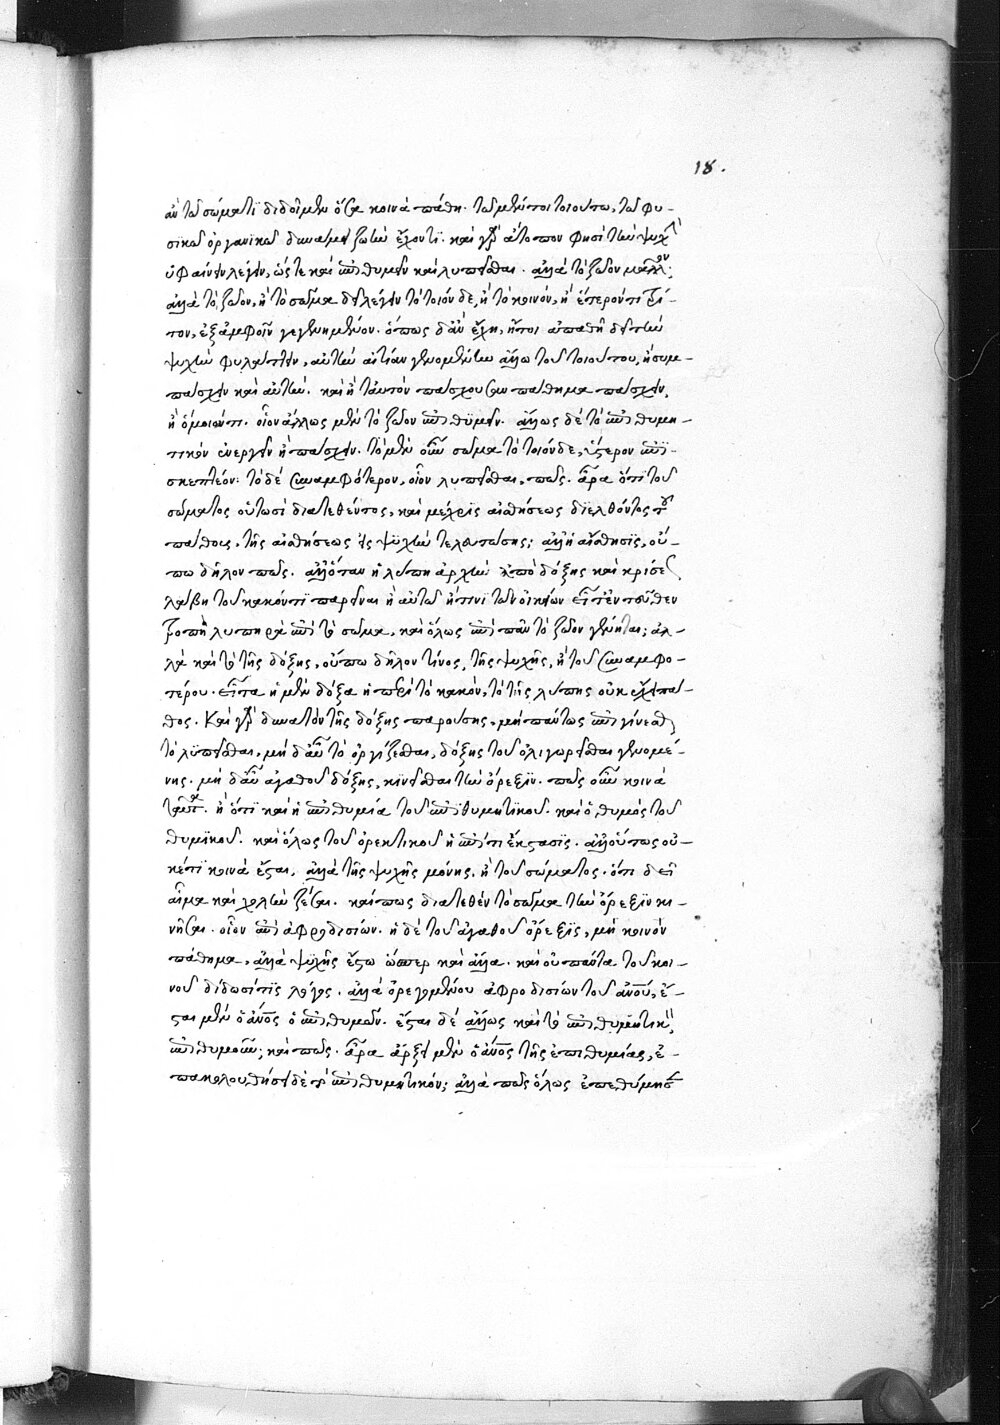 ἂν τῷ σώματι διδοῖμεν ὅσα κοινὰ πάθη. τῷ μέντοι τοιούτῳ, τῷ φυ-
σικῷ ὀργανικῷ δυνάμει ζωὴν ἔχοντι. καὶ γὰρ ἄτοπον φησὶ τὴν ψυχὴν
ὑφαίνειν λέγειν, ὥστε καὶ ἐπιθυμεῖν καὶ λυπεῖσθαι. ἀλλὰ τὸ ζῶον μᾶλλον·
ἀλλὰ τὸ ζῶον, ἢ τὸ σῶμα δεῖ λέγειν τὸ τοιόνδε, ἢ τὸ κοινόν, ἢ ἕτερόν τι τρί-
τον, ἐξ ἀμφοῖν γεγενημένον. ὅπως δ' ἂν ἔχη, ἤτοι ἀπαθῆ δεῖ τὴν
ψυχὴν φυλάττειν, αὐτὴν αἰτίαν γενομένην ἄλλω τοῦ τοιούτου, ἢ συμ-
πάσχειν καὶ αὐτήν. καὶ ἢ ταὐτὸν πάσχουσαν πάθημα πάσχειν,
ἢ ὅμοιόν τι. οἷον ἄλλως μὲν τὸ ζῶον ἐπιθυμεῖν. ἄλλως δὲ τὸ ἐπιθυμη-
τικὸν ἐνεργεῖν ἢ πάσχειν. τὸ μὲν οὖν σῶμα τὸ τοιόνδε, ὕστερον ἐπι-
σκεπτέον· τὸ δὲ συναμφότερον, οἷον λυπεῖσθαι, πῶς. ἆρα ὅτι τοῦ
σώματος οὑτωσὶ διατεθέντος, καὶ μέχρις αἰσθήσεως διελθόντος τοῦ
πάθους, τῆς αἰσθήσεως εἰς ψυχὴν τελευτώσης; ἀλλ' ἡ αἴσθησις, οὔ-
πω δῆλον πῶς. ἀλλ' ὅταν ἡ λύπη ἀρχὴν ἀπὸ δόξης καὶ κρίσεως
λάβη τοῦ κακόν τι παρεῖναι ἢ αὐτῶ ἤ τινι τῶν οἰκείων εἶτ' ἐντεῦθεν
τροπὴ λυπηρὰ ἐπὶ τὸ σῶμα, καὶ ὅλως ἐπὶ πᾶν τὸ ζῶον γένηται; ἀλ-
λὰ καὶ τὸ τῆς δόξης, οὔπω δῆλον τίνος, τῆς ψυχῆς, ἢ τοῦ συναμφο-
τέρου. εἶτα ἡ μὲν δόξα ἡ περὶ τὸ κακόν, τὸ τῆς λύπης οὐκ ἔχει πά-
θος. καὶ γὰρ δυνατὸν τῆς δόξης παρούσης, μὴ πάντως ἐπιγίνεσθαι
τὸ λυπεῖσθαι, μὴ δ' αὖ τὸ ὀργίζεσθαι, δόξης τοῦ ὀλιγωρεῖσθαι γενομέ-
νης. μὴ δ' αὖ ἀγαθοῦ δόξης, κινεῖσθαι τὴν ὄρεξιν. πῶς οὖν κοινὰ
ταῦτα. ἢ ὅτι καὶ ἡ ἐπιθυμία τοῦ ἐπιθυμητικοῦ. καὶ ὁ θυμὸς τοῦ
θυμικοῦ. καὶ ὅλως τοῦ ὀρεκτικοῦ ἡ ἐπί τι ἔκστασις. ἀλλ' οὕτως οὐ-
κέτι κοινὰ ἔσται, ἀλλὰ τῆς ψυχῆς μόνης. ἢ τοῦ σώματος. ὅτι δεῖ
αἷμα καὶ χολὴν ζέσαι. καί πως διατεθὲν τὸ σῶμα τὴν ὄρεξιν κι-
νῆσαι. οἷον ἐπὶ ἀφροδισίων. ἡ δὲ τοῦ ἀγαθοῦ ὄρεξις, μὴ κοινὸν
πάθημα, ἀλλὰ ψυχῆς ἔστω ὥσπερ καὶ ἄλλα. καὶ οὐ πάντα τοῦ κοι-
νοῦ δίδωσί τις λόγος. ἀλλὰ ὀρεγομένου ἀφροδισίων τοῦ ἀνου, ἔ-
σται μὲν ὁ ἀνος ὁ ἐπιθυμῶν. ἔσται δὲ ἄλλως καὶ τὸ ἐπιθυμητικὸν
ἐπιθυμοῦν; καὶ πῶς. ἆρα ἄρξει μὲν ὁ ἀνος τῆς ἐπιθυμίας, ἐ-
πακολουθήσει δὲ τὸ ἐπιθυμητικόν; ἀλλὰ πῶς ὅλως ἐπεθύμησεν